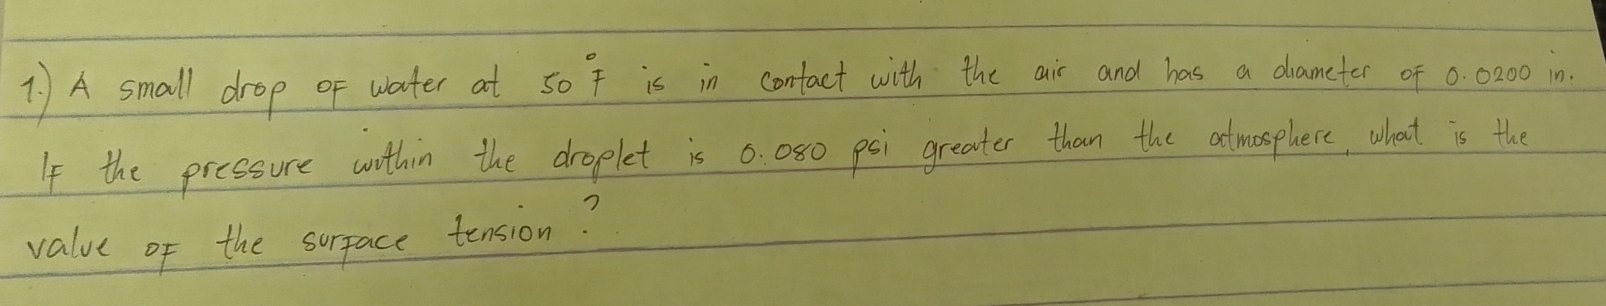 1.) A small drop of water at 50°F is in contact with the air and has a diameter of 0.0200 in.
If the pressure within the droplet is 0.080 psi greater than the atmosphere, what is the
value of the surface tension?